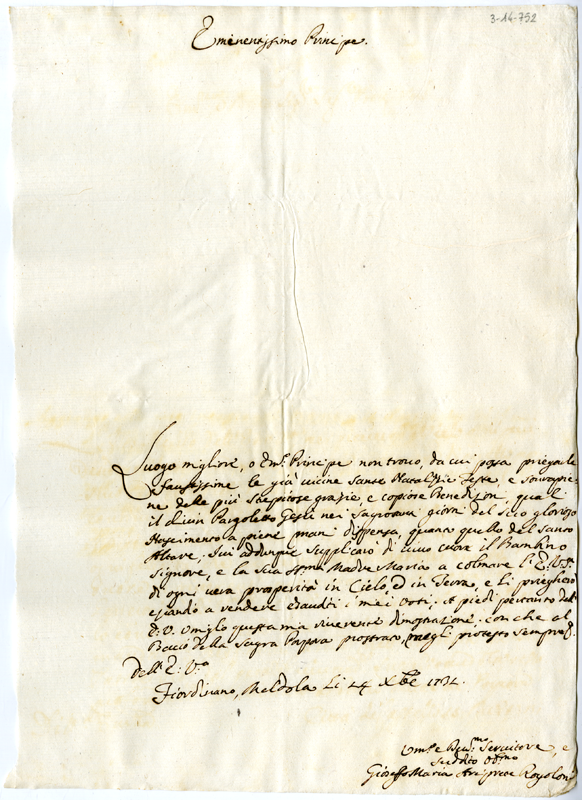 3-14-792
Eminentissimo Principe.
Luogo migliore, o Em.º Principe non trovo, da cui possa priegarle
faustissime le già vicine Sante Natalizie Feste, e sovrapie-
ne delle più strepitose grazie e copiose Benedizioni, quali
il divin Pargoletto Gesù nei sagrosanti giorni del suo glorioso
Nascimento a piene mani dispensa, quanto quello del Santo
Altare, Ivi addunque supplicarò di vivo cuore il Bambino
Signore, e la sua SS.ma Madre Maria a colmare l'E. V.ra
di ogni vera prosperità in Cielo, e in Terra, e li prieghierò
eziandio a rendere esauditi i miei voti. A piedi pertanto dell'
E. V. umiglio questa mia riverente dimostrazione, con che al
Baccio della Sagra Porpora prostrato, mi protesto sempre
Dell' E: V.ra
Fiordinano, Meldola Li 14 Xbre 1732.
Um.o e Dev.mo Servitore, e
Suddito Ob.mo
Gioseffo Maria Arciprete